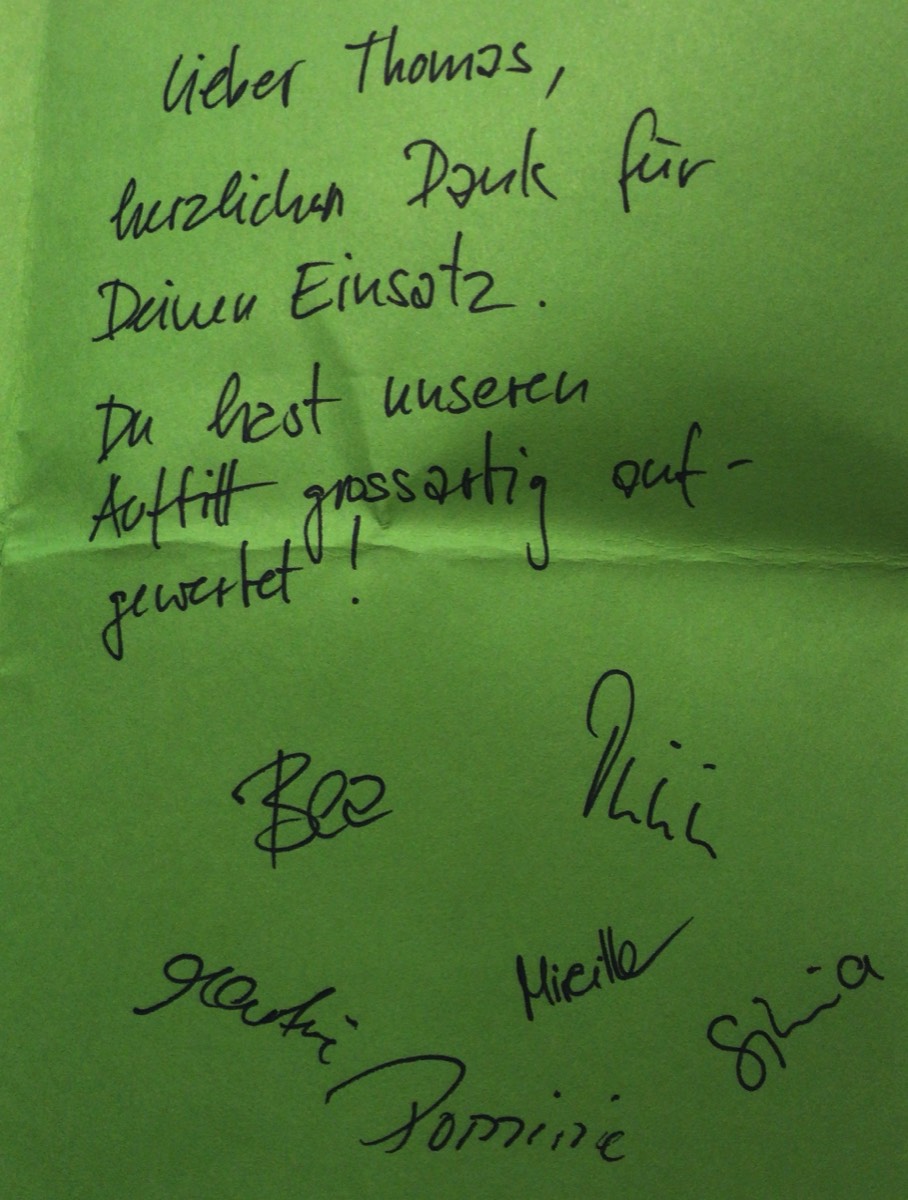 lieber Thomas,
herzlichen Dank für
Deinen Einsatz.
Du hast unseren
Auftritt grossartig auf-
gewertet!
Bea
Mireille
Sylvia